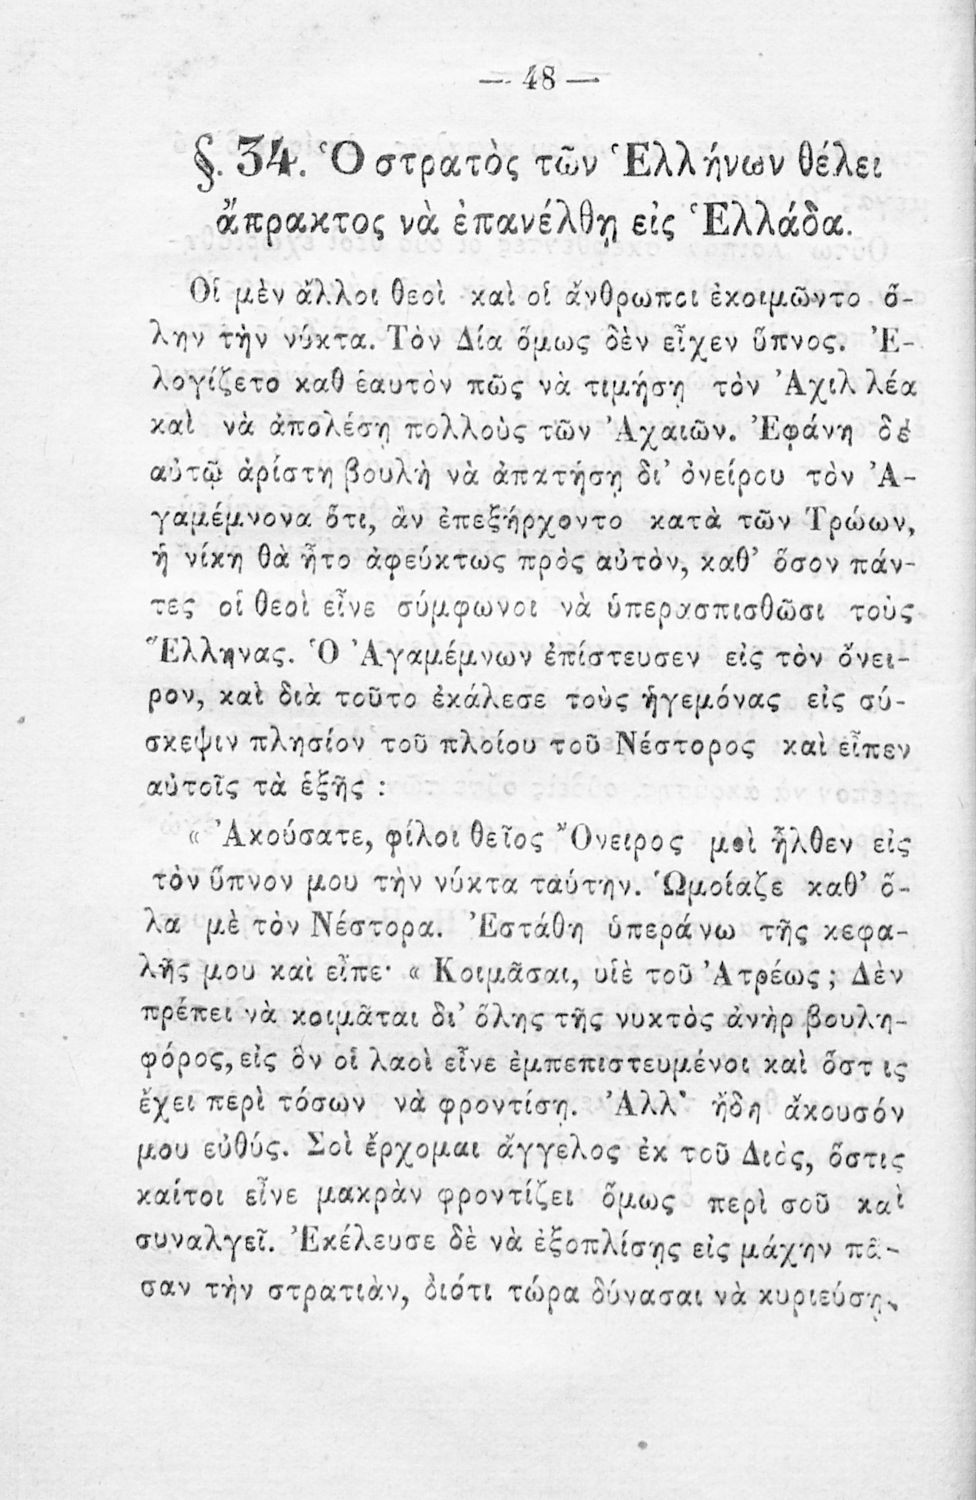 — 48 —
§. 34. Ὁ στρατὸς τῶν Ἑλλήνων θέλει
ἄπρακτος νὰ ἐπανέλθῃ εἰς Ἑλλάδα.
Οἱ μὲν ἄλλοι θεοὶ καὶ οἱ ἄνθρωποι ἐκοιμῶντο ὅ-
λην τὴν νύκτα. Τὸν Δία ὅμως δὲν εἶχεν ὕπνος. Ἐ-
λογίζετο καθ ἑαυτὸν πῶς νὰ τιμήσῃ τὸν Ἀχιλλέα
καὶ νὰ ἀπολέσῃ πολλοὺς τῶν Ἀχαιῶν. Ἐφάνη δὲ
αὐτῷ ἀρίστη βουλὴ νὰ ἀπατήσῃ δι' ὀνείρου τὸν Ἀ-
γαμέμνονα ὅτι, ἂν ἐπεξήρχοντο κατὰ τῶν Τρώων,
ἡ νίκη θὰ ἦτο ἀφεύκτως πρὸς αὐτὸν, καθ' ὅσον πάν-
τες οἱ θεοὶ εἶνε σύμφωνοι νὰ ὑπερασπισθῶσι τοὺς
Ἕλληνας. Ὁ Ἀγαμέμνων ἐπίστευσεν εἰς τὸν ὄνει-
ρον, καὶ διὰ τοῦτο ἐκάλεσε τοὺς ἡγεμόνας εἰς σύ-
σκεψιν πλησίον τοῦ πλοίου τοῦ Νέστορος καὶ εἶπεν
αὐτοῖς τὰ ἑξῆς :
« Ἀκούσατε, φίλοι θεῖος Ὄνειρος μοὶ ἦλθεν εἰς
τὸν ὕπνον μου τὴν νύκτα ταύτην. Ὡμοίαζε καθ' ὅ-
λα μὲ τὸν Νέστορα. Ἐστάθη ὑπεράνω τῆς κεφα-
λῆς μου καὶ εἶπε· « Κοιμᾶσαι, υἱὲ τοῦ Ἀτρέως ; Δὲν
πρέπει νὰ κοιμᾶται δι' ὅλης τῆς νυκτὸς ἀνὴρ βουλη-
φόρος, εἰς ὃν οἱ λαοὶ εἶνε ἐμπεπιστευμένοι καὶ ὅστις
ἔχει περὶ τόσων νὰ φροντίσῃ. Ἀλλ' ἤδη ἄκουσόν
μου εὐθύς. Σοὶ ἔρχομαι ἄγγελος ἐκ τοῦ Διὸς, ὅστις
καίτοι εἶνε μακρὰν φροντίζει ὅμως περὶ σοῦ καὶ
συναλγεῖ. Ἐκέλευσε δὲ νὰ ἐξοπλίσῃς εἰς μάχην πᾶ-
σαν τὴν στρατιὰν, διότι τώρα δύνασαι νὰ κυριεύσῃς